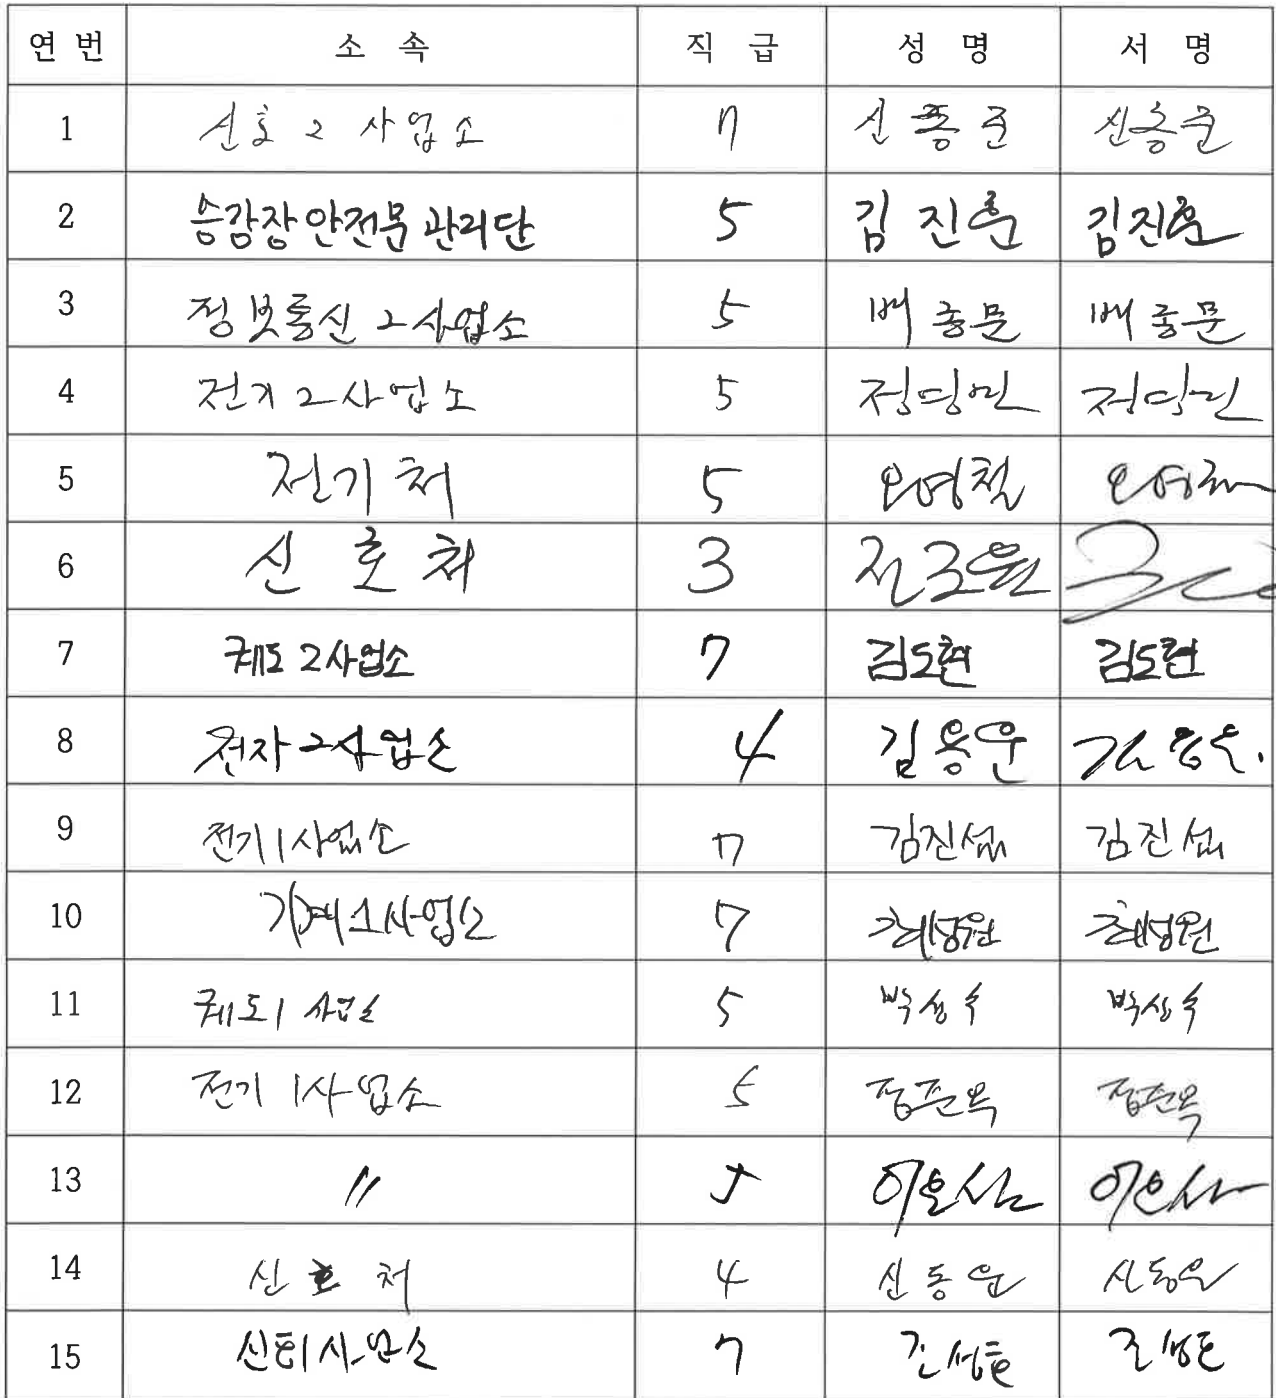 연 번 소 속 직 급 성 명 서 명
1 신호 2 사업소 7 신 종 준 신종준
2 승강장안전문관리단 5 김 진훈 김진훈
3 정보통신 2사업소 5 배 종문 배 종문
4 전기 2사업소 5
5 전기처 5 오영철 오영철
6 신 호 처 3
7 궤도 2사업소 7 김도현 김도현
8 전자 2사업소 4 김용운
9 전기1사업소 7 김진섭 김진섭
10 기계1사업소 7 최성원 최성원
11 궤도1 사업소 5
12 전기 1사업소 5 정준옥 정준옥
13 〃 5
14 신 호 처 4 신동운 신동운
15 신호1사업소 7